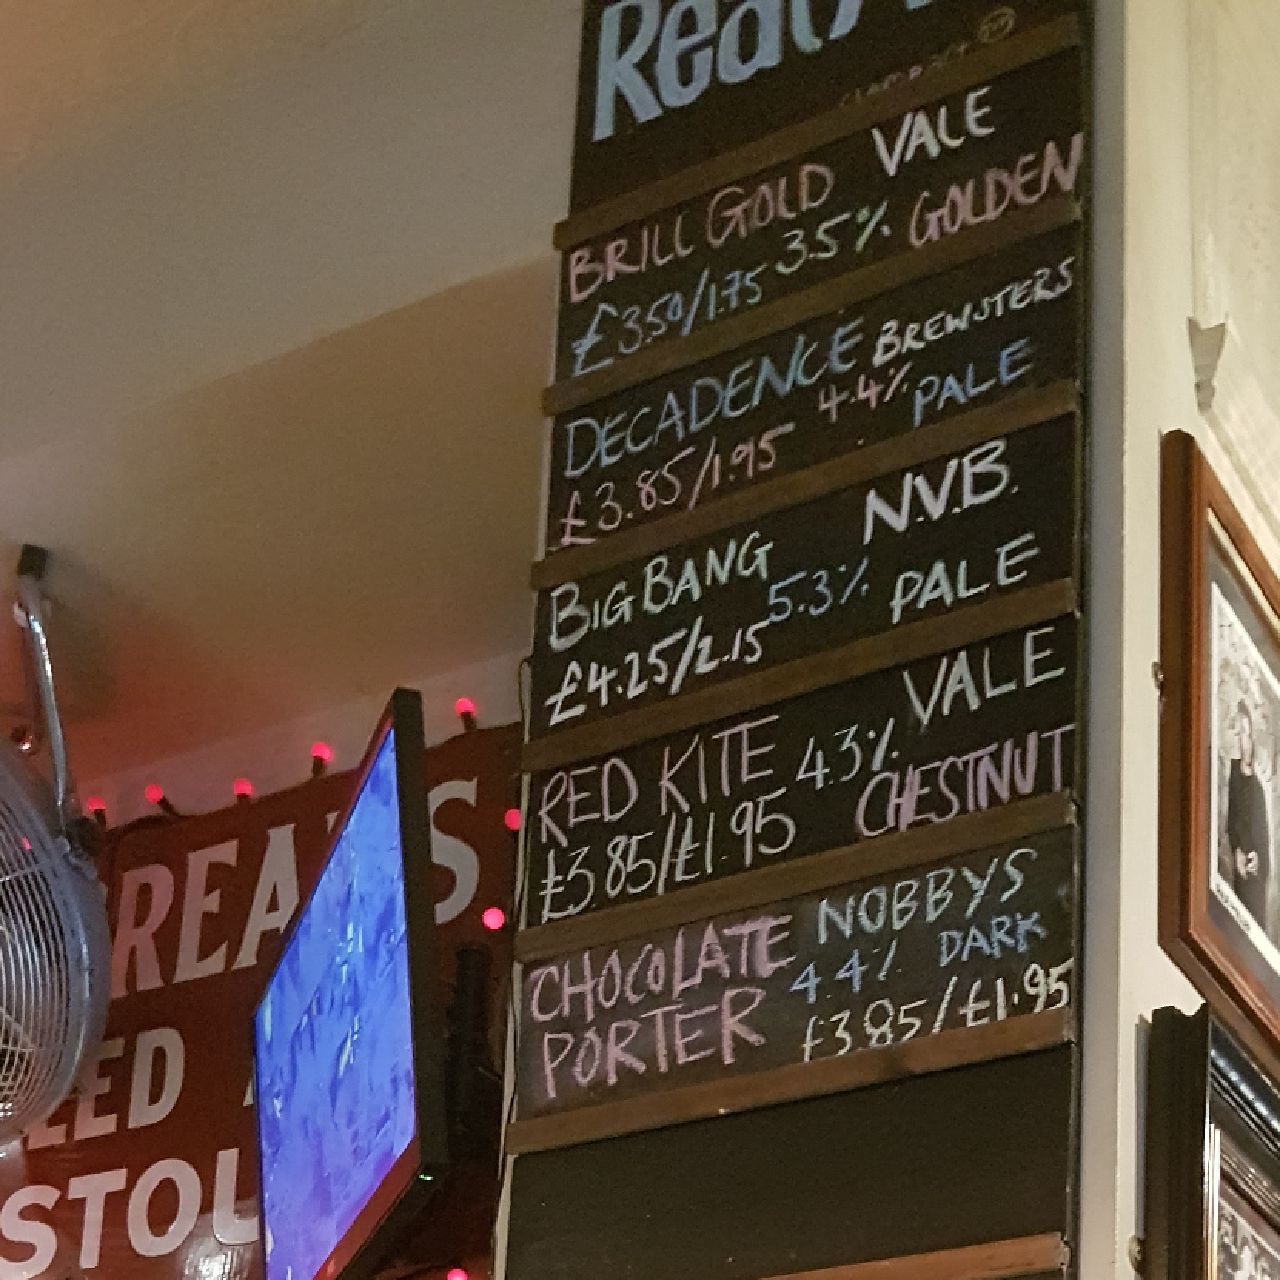 Real
VALE
BRILL GOLD
£3.50/1.75 3.5% GOLDEN
DECADENCE BREWSTERS
£3.85/1.95 4.4% PALE
BIG BANG N.V.B.
£4.25/2.15 5.3% PALE
RED KITE 4.3% VALE
£3.85/£1.95 CHESTNUT
CHOCOLATE NOBBYS
PORTER 4.4% DARK
£3.85/£1.95